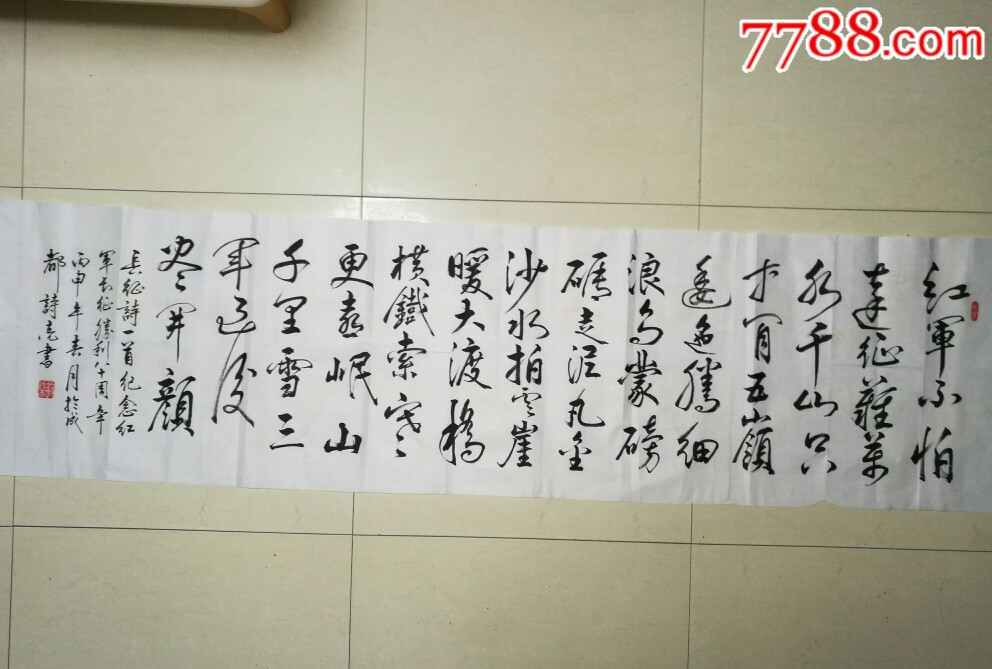 7788.com
紅軍不怕
遠征難萬
水千山只
等閒五嶺
逶迤腾细
浪烏蒙磅
礴走泥丸金
沙水拍雲崖
暖大渡橋
横鐵索寒
更喜岷山
千里雪三
軍過後
盡開顔
長征詩一首紀念红
軍長征勝利八十周年
丙申年春月於成
都詩亮書